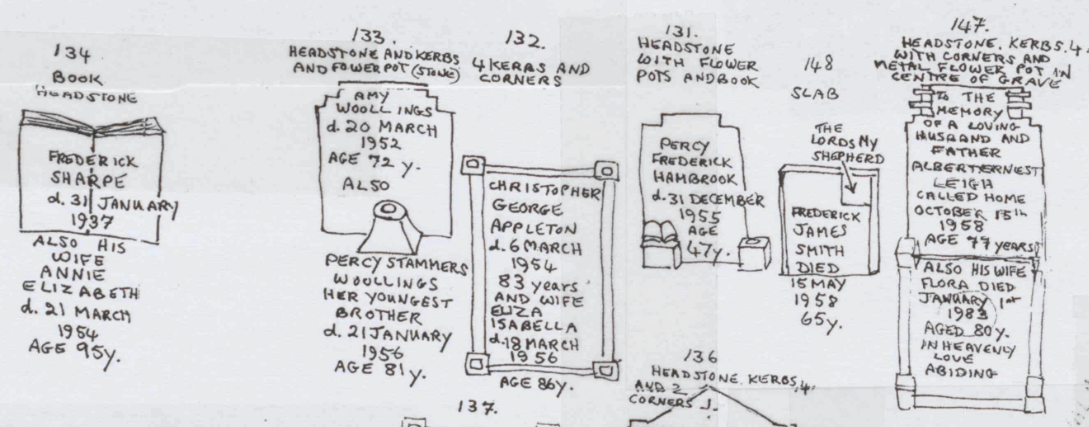 134
BOOK
HEADSTONE
FREDERICK
SHARPE
d. 31 JANUARY
1937
ALSO HIS
WIFE
ANNIE
ELIZABETH
d. 21 MARCH
1954
AGE 95y.
133.
HEADSTONE AND KERBS
AND FOWER POT (STONE)
AMY
WOOLLINGS
d. 20 MARCH
1952
AGE 72 y.
ALSO
PERCY STAMMERS
WOOLLINGS
HER YOUNGEST
BROTHER
d. 21 JANUARY
1956
AGE 81 y.
132.
4 KERBS AND
CORNERS
CHRISTOPHER
GEORGE
APPLETON
d. 6 MARCH
1954
83 years
AND WIFE
ELIZA
ISABELLA
d. 18 MARCH
1956
AGE 86y.
131.
HEADSTONE
WITH FLOWER
POTS AND BOOK
PERCY
FREDERICK
HAMBROOK
d. 31 DECEMBER
1955
AGE
47y.
148
SLAB
THE
LORDS MY
SHEPHERD
FREDERICK
JAMES
SMITH
DIED
15 MAY
1958
65y.
147.
HEADSTONE. KERBS. 4.
WITH CORNERS AND
METAL FLOWER POT IN
CENTRE OF GRAVE
TO THE
MEMORY
OF A LOVING
HUSBAND AND
FATHER
ALBERT ERNEST
LEIGH
CALLED HOME
OCTOBER 15th
1958
AGE 77 years
ALSO HIS WIFE
FLORA DIED
JANUARY 1st
1983
AGED 80y.
IN HEAVENLY
LOVE
ABIDING
137.
136
HEADSTONE. KERBS. 4.
AND 2
CORNERS